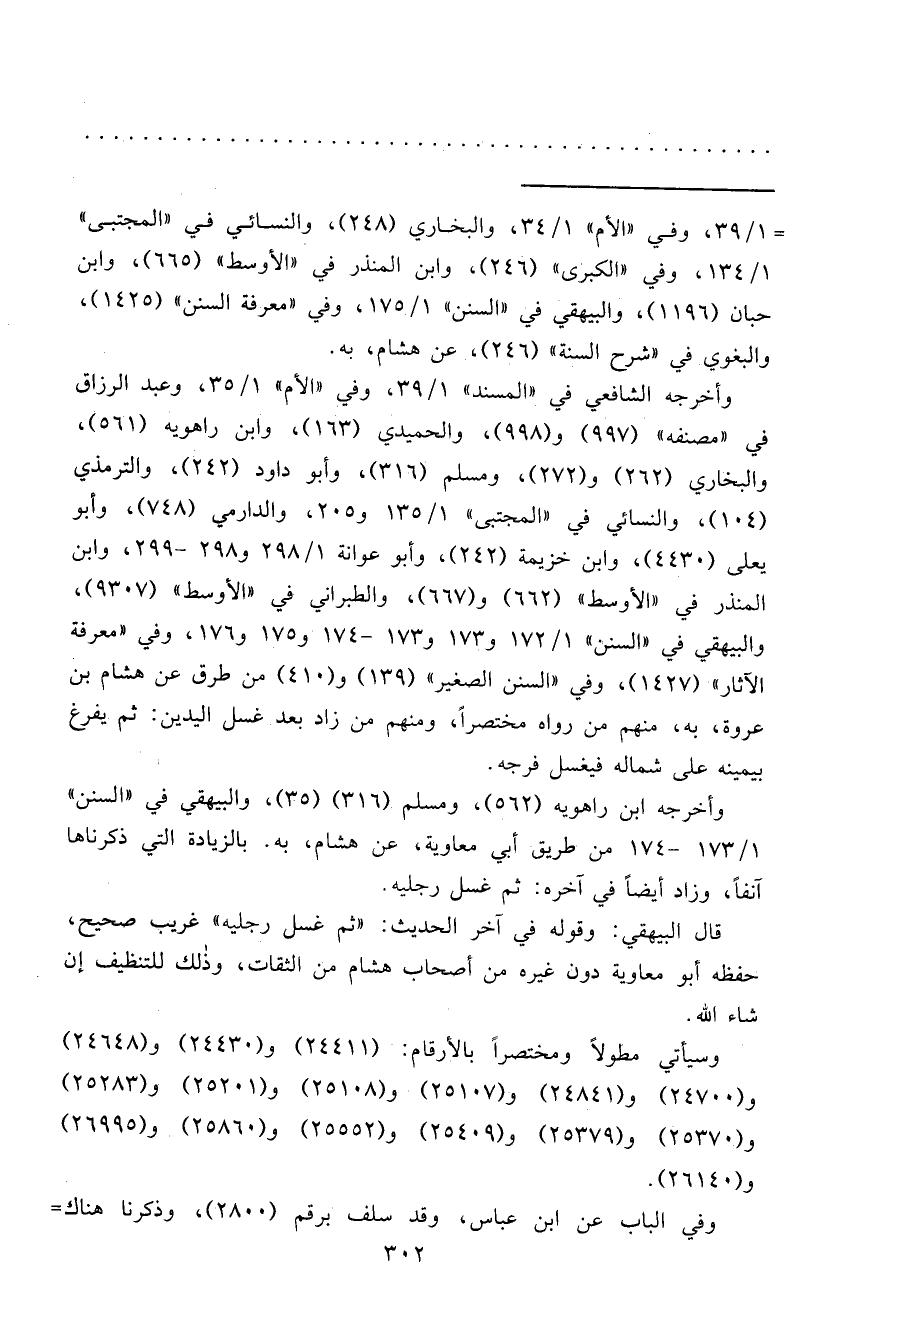 = ٣٩/١، وفي «الأم» ٣٤/١، والبخاري (٢٤٨)، والنسائي في «المجتبى»
١٣٤/١، وفي «الكبرى» (٢٤٦)، وابن المنذر في «الأوسط» (٦٦٥)، وابن
حبان (١١٩٦)، والبيهقي في «السنن» ١٧٥/١، وفي «معرفة السنن» (١٤٢٥)،
والبغوي في «شرح السنة» (٢٤٦)، عن هشام، به.
وأخرجه الشافعي في «المسند» ٣٩/١، وفي «الأم» ٣٥/١، وعبد الرزاق
في «مصنفه» (٩٩٧) و(٩٩٨)، والحميدي (١٦٣)، وابن راهويه (٥٦١)،
والبخاري (٢٦٢) و(٢٧٢)، ومسلم (٣١٦)، وأبو داود (٢٤٢)، والترمذي
(١٠٤)، والنسائي في «المجتبى» ١٣٥/١ و٢٠٥، والدارمي (٧٤٨)، وأبو
يعلى (٤٤٣٠)، وابن خزيمة (٢٤٢)، وأبو عوانة ٢٩٨/١ و٢٩٨ -٢٩٩، وابن
المنذر في «الأوسط» (٦٦٢) و(٦٦٧)، والطبراني في «الأوسط» (٩٣٠٧)،
والبيهقي في «السنن» ١٧٢/١ و١٧٣ و١٧٣ -١٧٤ و١٧٥ و١٧٦، وفي «معرفة
الآثار» (١٤٢٧)، وفي «السنن الصغير» (١٣٩) و(٤١٠) من طرق عن هشام بن
عروة، به، منهم من رواه مختصراً، ومنهم من زاد بعد غسل اليدين: ثم يفرغ
بيمينه على شماله فيغسل فرجه.
وأخرجه ابن راهويه (٥٦٢)، ومسلم (٣١٦) (٣٥)، والبيهقي في «السنن»
١٧٣/١ -١٧٤ من طريق أبي معاوية، عن هشام، به. بالزيادة التي ذكرناها
آنفاً، وزاد أيضاً في آخره: ثم غسل رجليه.
قال البيهقي: وقوله في آخر الحديث: «ثم غسل رجليه» غريب صحيح،
حفظه أبو معاوية دون غيره من أصحاب هشام من الثقات، وذٰلك للتنظيف إن
شاء الله.
وسيأتي مطولاً ومختصراً بالأرقام: (٢٤٤١١) و(٢٤٤٣٠) و(٢٤٦٤٨)
و(٢٤٧٠٠) و(٢٤٨٤١) و(٢٥١٠٧) و(٢٥١٠٨) و(٢٥٢٠١) و(٢٥٢٨٣)
و(٢٥٣٧٠) و(٢٥٣٧٩) و(٢٥٤٠٩) و(٢٥٥٥٢) و(٢٥٨٦٠) و(٢٦٩٩٥)
و(٢٦١٤٠).
وفي الباب عن ابن عباس، وقد سلف برقم (٢٨٠٠)، وذكرنا هناك=
٣٠٢